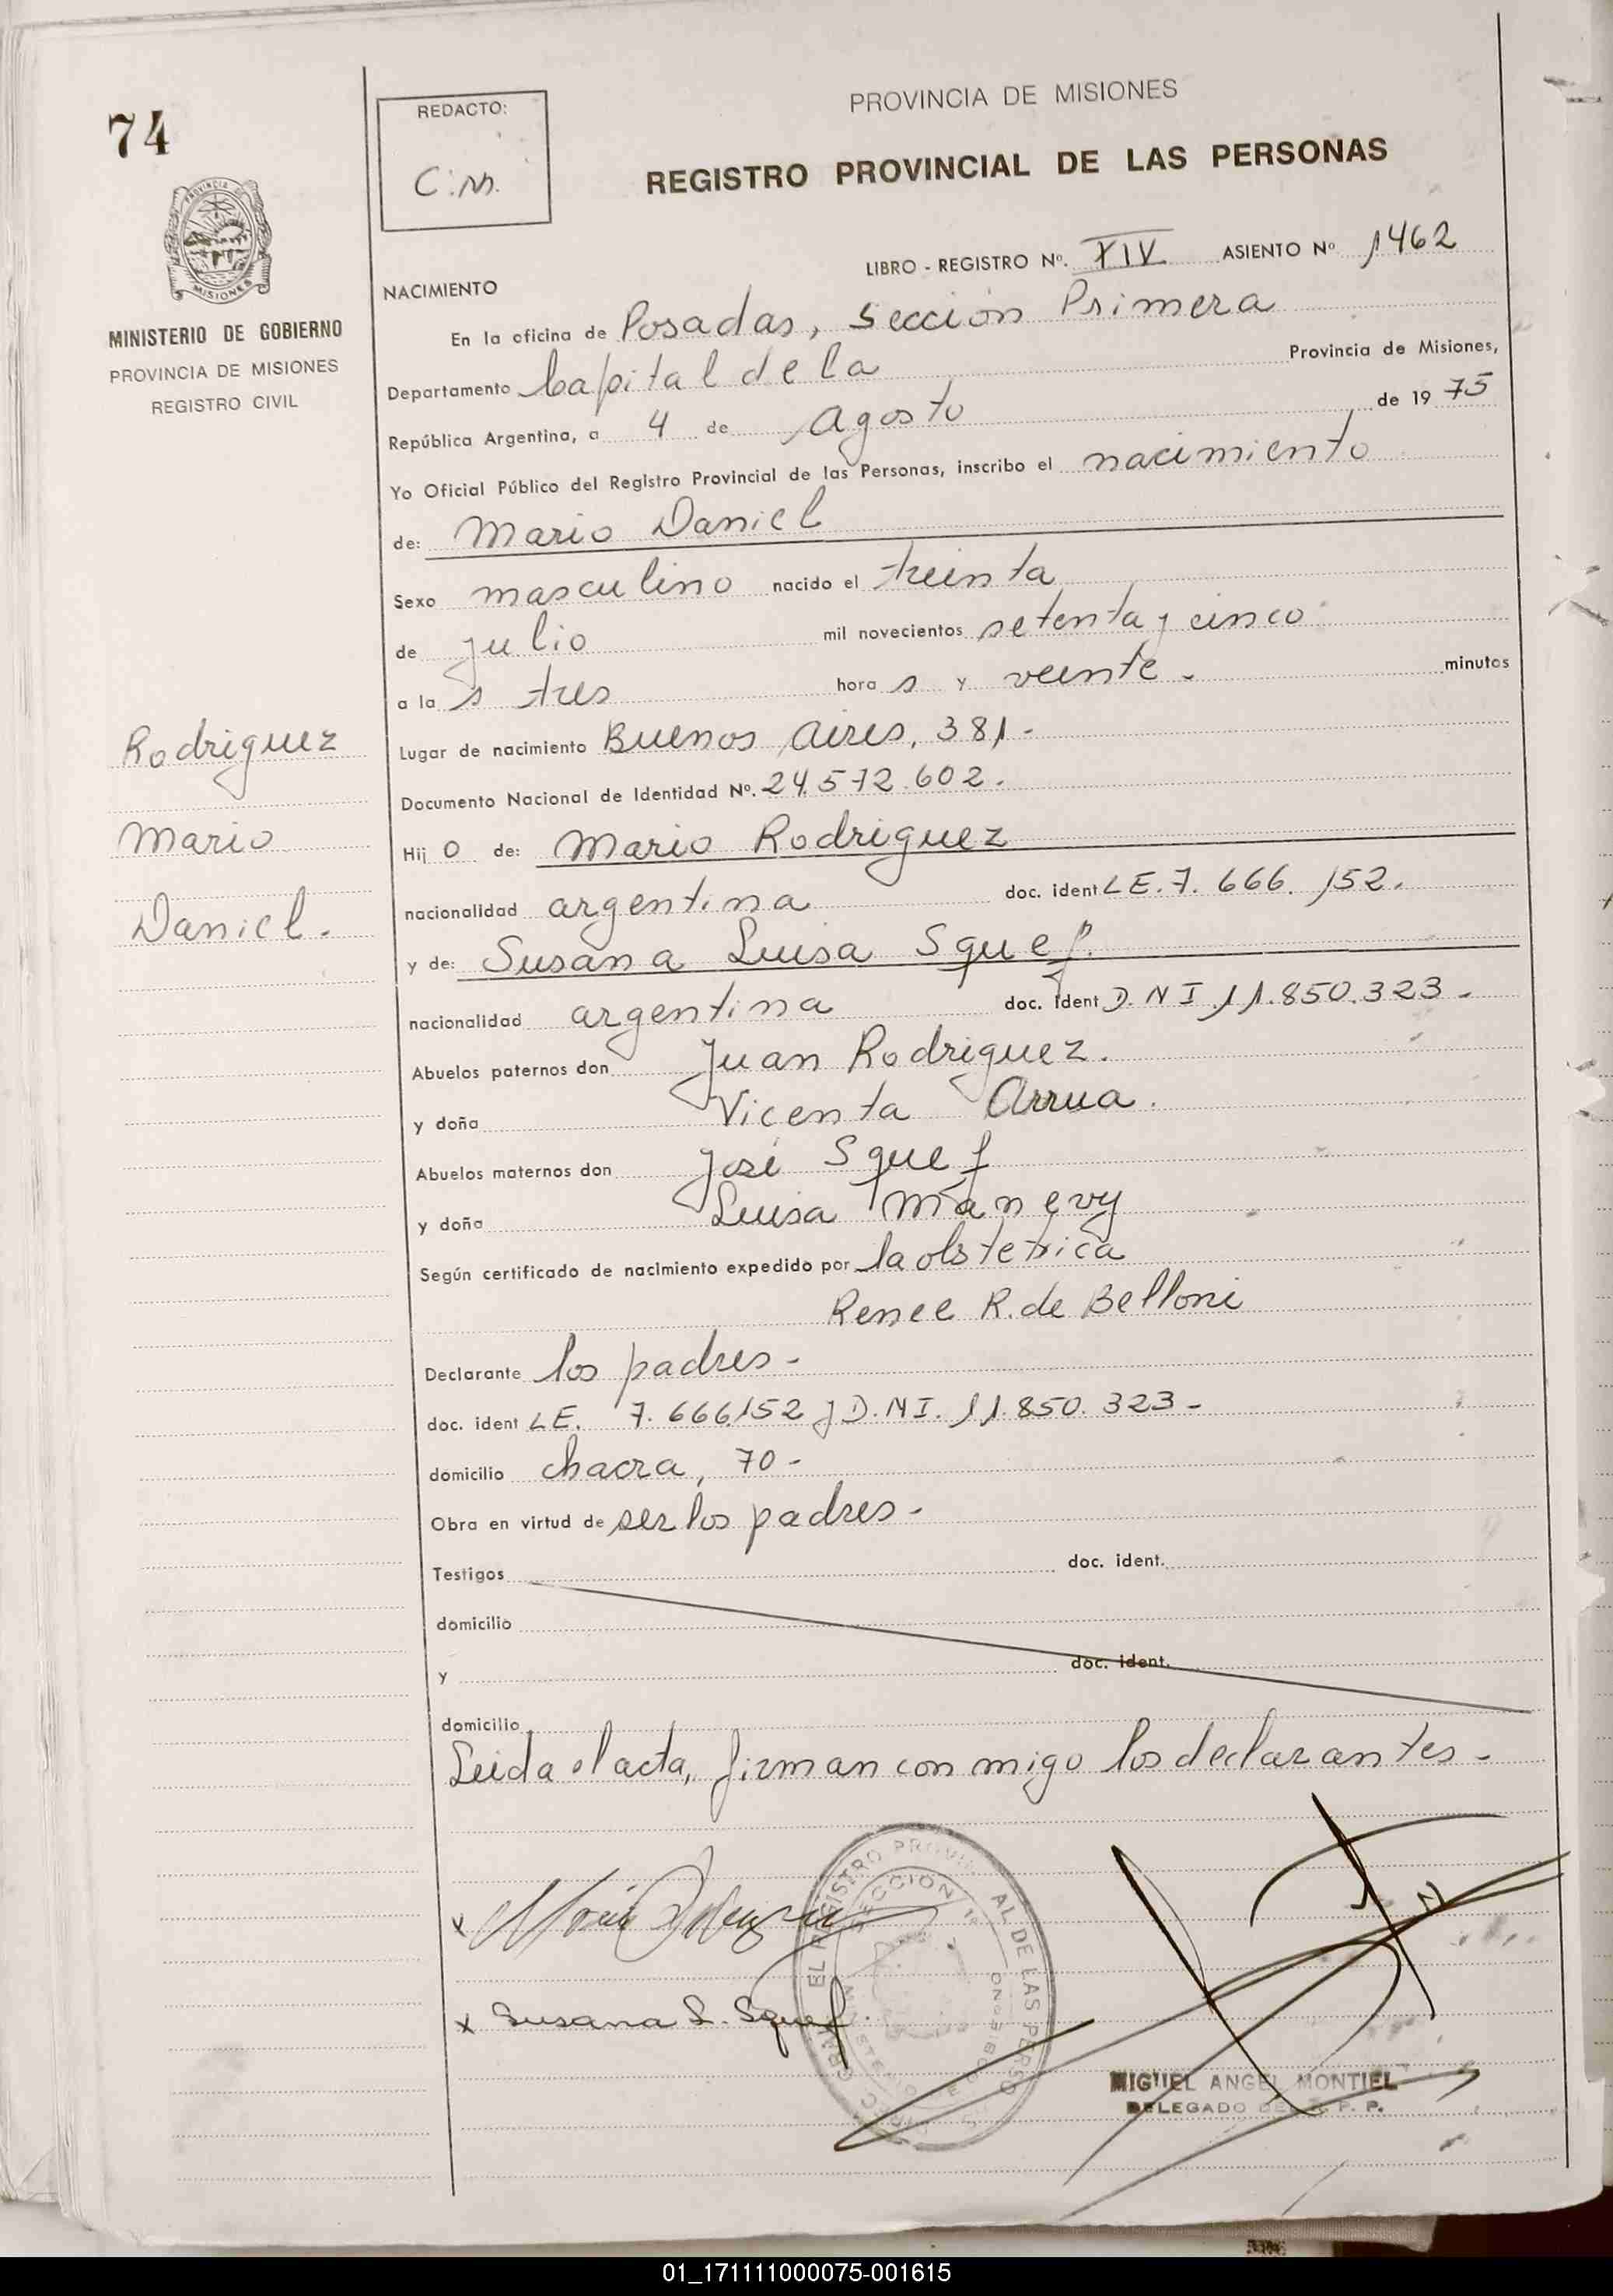 74
PROVINCIA DE MISIONES
MINISTERIO DE GOBIERNO
PROVINCIA DE MISIONES
REGISTRO CIVIL
Rodriguez
Mario
Daniel.
REDACTO:
C.M.
PROVINCIA DE MISIONES
REGISTRO PROVINCIAL DE LAS PERSONAS
LIBRO - REGISTRO Nº. XIV ASIENTO Nº 1462
NACIMIENTO
En la oficina de Posadas, Sección Primera
Departamento Capital de la Provincia de Misiones,
República Argentina, a 4 de Agosto de 19 75
Yo Oficial Público del Registro Provincial de las Personas, inscribo el nacimiento
de: Mario Daniel
Sexo masculino nacido el treinta
de julio mil novecientos setenta y cinco
a la s tres hora s y veinte. minutos
Lugar de nacimiento Buenos Aires, 381-
Documento Nacional de Identidad Nº. 24.572.602.
Hij o de: Mario Rodriguez
nacionalidad argentina doc. ident LE. 7. 666. 152.
y de: Susana Luisa Squef.
nacionalidad argentina doc. ident D. N I 11.850.323-
Abuelos paternos don Juan Rodriguez.
y doña Vicenta Arrua.
Abuelos maternos don José Squef
y doña Luisa Manevy
Según certificado de nacimiento expedido por la obstetrica
Renee R. de Belloni
Declarante los padres-
doc. ident LE. 7. 666.152 y D.NI. 11.850.323-
domicilio chacra, 70-
Obra en virtud de ser los padres-
Testigos doc. ident.
domicilio
y doc. ident.
domicilio
Leida el acta, firman con migo los declarantes-
x
x Susana L. Squef.
REGISTRO PROVINCIAL DE LAS PERSO
SECCION 1ª
MIGUEL ANGEL MONTIEL
DELEGADO DEL R. P. P.
01_171111000075-001615